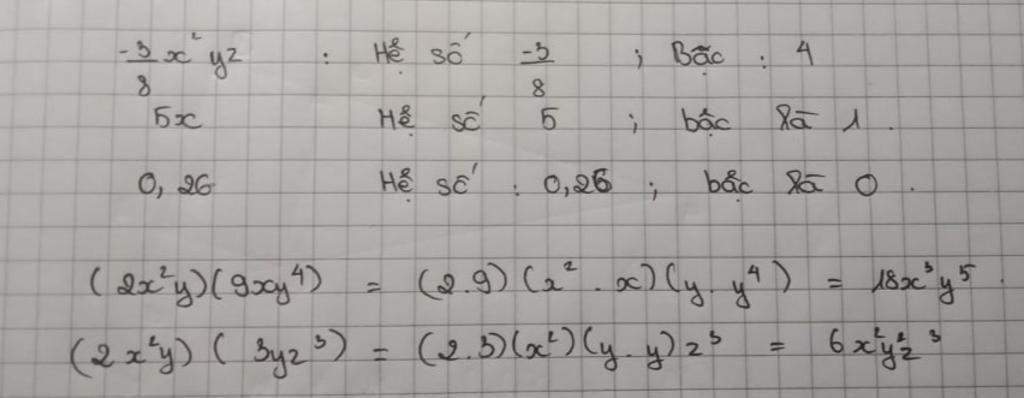 -3/8 x²yz : Hệ số -3/8 ; Bậc : 4
5x Hệ số 5 ; bậc là 1.
0,26 Hệ số : 0,26 ; bậc là 0.
(2x²y)(9xy⁴) = (2.9)(x².x)(y.y⁴) = 18x³y⁵.
(2x²y)(3yz³) = (2.3)(x²)(y.y)z³ = 6x²y²z³